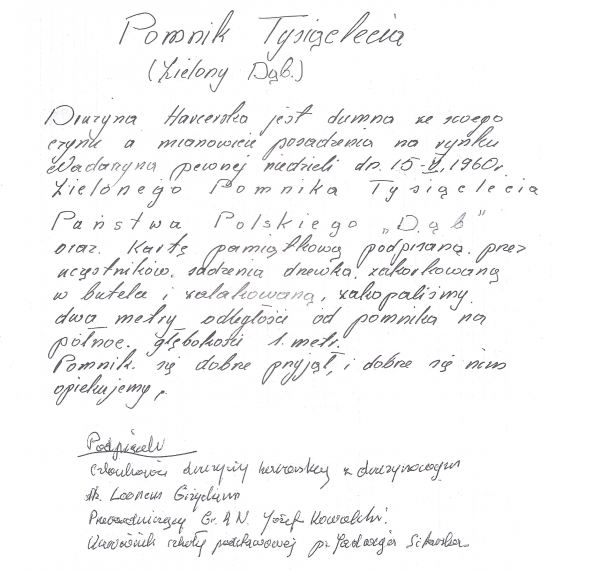 Pomnik Tysiąclecia
(Zielony Dąb.)
Drużyna Harcerska jest dumna ze swego
czynu a mianowicie posadzenia na rynku
Nadarzyna pewnej niedzieli dn. 15-V,1960r.
Zielonego Pomnika Tysiąclecia
Państwa Polskiego „Dąb"
oraz. Kartę pamiątkową podpisaną. przez
uczęstników. sadzenia drzewka. zakorkowaną
w butela i zalakowaną, zakopaliśmy.
dwa metry odległości od pomnika na
północ. głębokości 1. metr.
Pomnik. się dobrze przyjął, i dobrze się nim
opiekujemy,
Podpisali
Członkowie drużyny harcerskiej z drużynowym
Leonem
Przewodniczący Gr. R N. Józef Kowalski.
Kierownik szkoły podstawowej p. Jadwiga